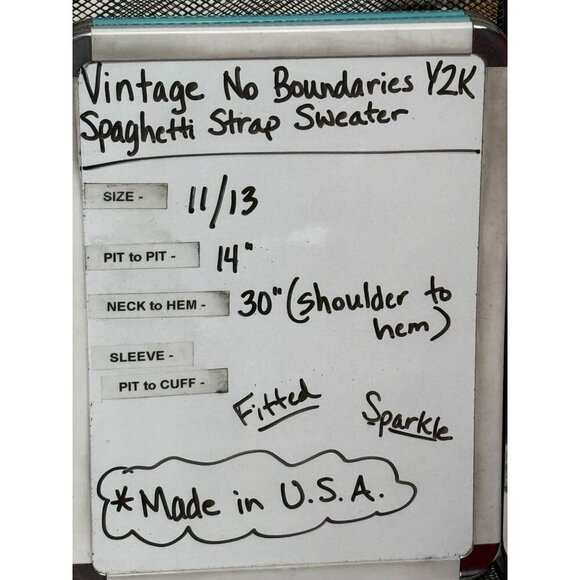 Vintage No Boundaries Y2K
Spaghetti Strap Sweater
SIZE - 11/13
PIT to PIT - 14"
NECK to HEM - 30" (shoulder to
hem)
SLEEVE -
PIT to CUFF -
Fitted Sparkle
*Made in U.S.A.